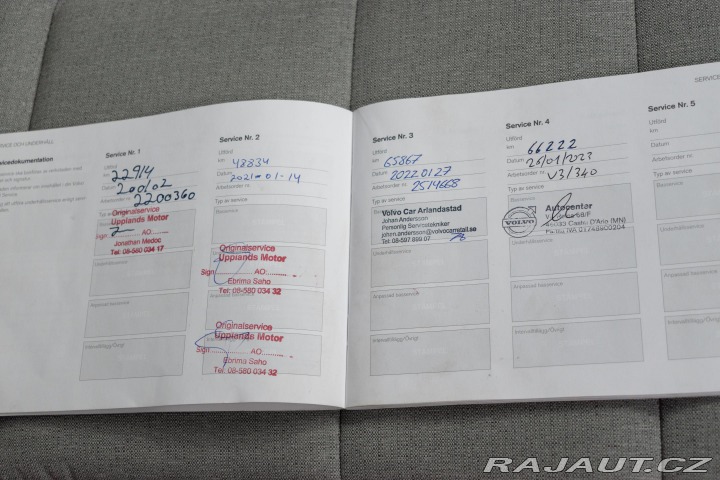 SERVICE OCH UNDERHÅLL
Service Nr. 1
Utförd
km 22914
Datum 200102
Arbetsorder nr. 2200360
Typ av service
Originalservice
Upplands Motor
Sign AO
Jonathan Medoc
Tel: 08-580 034 17
Anpassad basservice
Intervalltillägg/Övrigt
Service Nr. 2
Utförd
km 48834
Datum 2021-01-14
Arbetsorder nr.
Typ av service
Originalservice
Upplands Motor
Sign AO
Ebrima Saho
Tel: 08-580 034 32
Originalservice
Upplands Motor
Sign AO
Ebrima Saho
Tel: 08-580 034 32
SERVICE
Service Nr. 3
Utförd
km 65867
Datum 20220127
Arbetsorder nr. 2514668
Typ av service
Volvo Car Arlandastad
Johan Andersson
Personlig Servicetekniker
john.andersson@volvocarretail.se
Tel: 08-597 899 07
Anpassad basservice
Intervalltillägg/Övrigt
Service Nr. 4
Utförd
km 66222
Datum 26/01/2023
Arbetsorder nr. V3/340
Typ av service
VOLVO
Autocenter
46033 Castel D'Ario (MN)
Partita IVA 01748900204
Anpassad basservice
Intervalltillägg/Övrigt
Service Nr. 5
Utförd
km
Datum
Arbetsorder nr.
Typ av service
RAJAUT.CZ